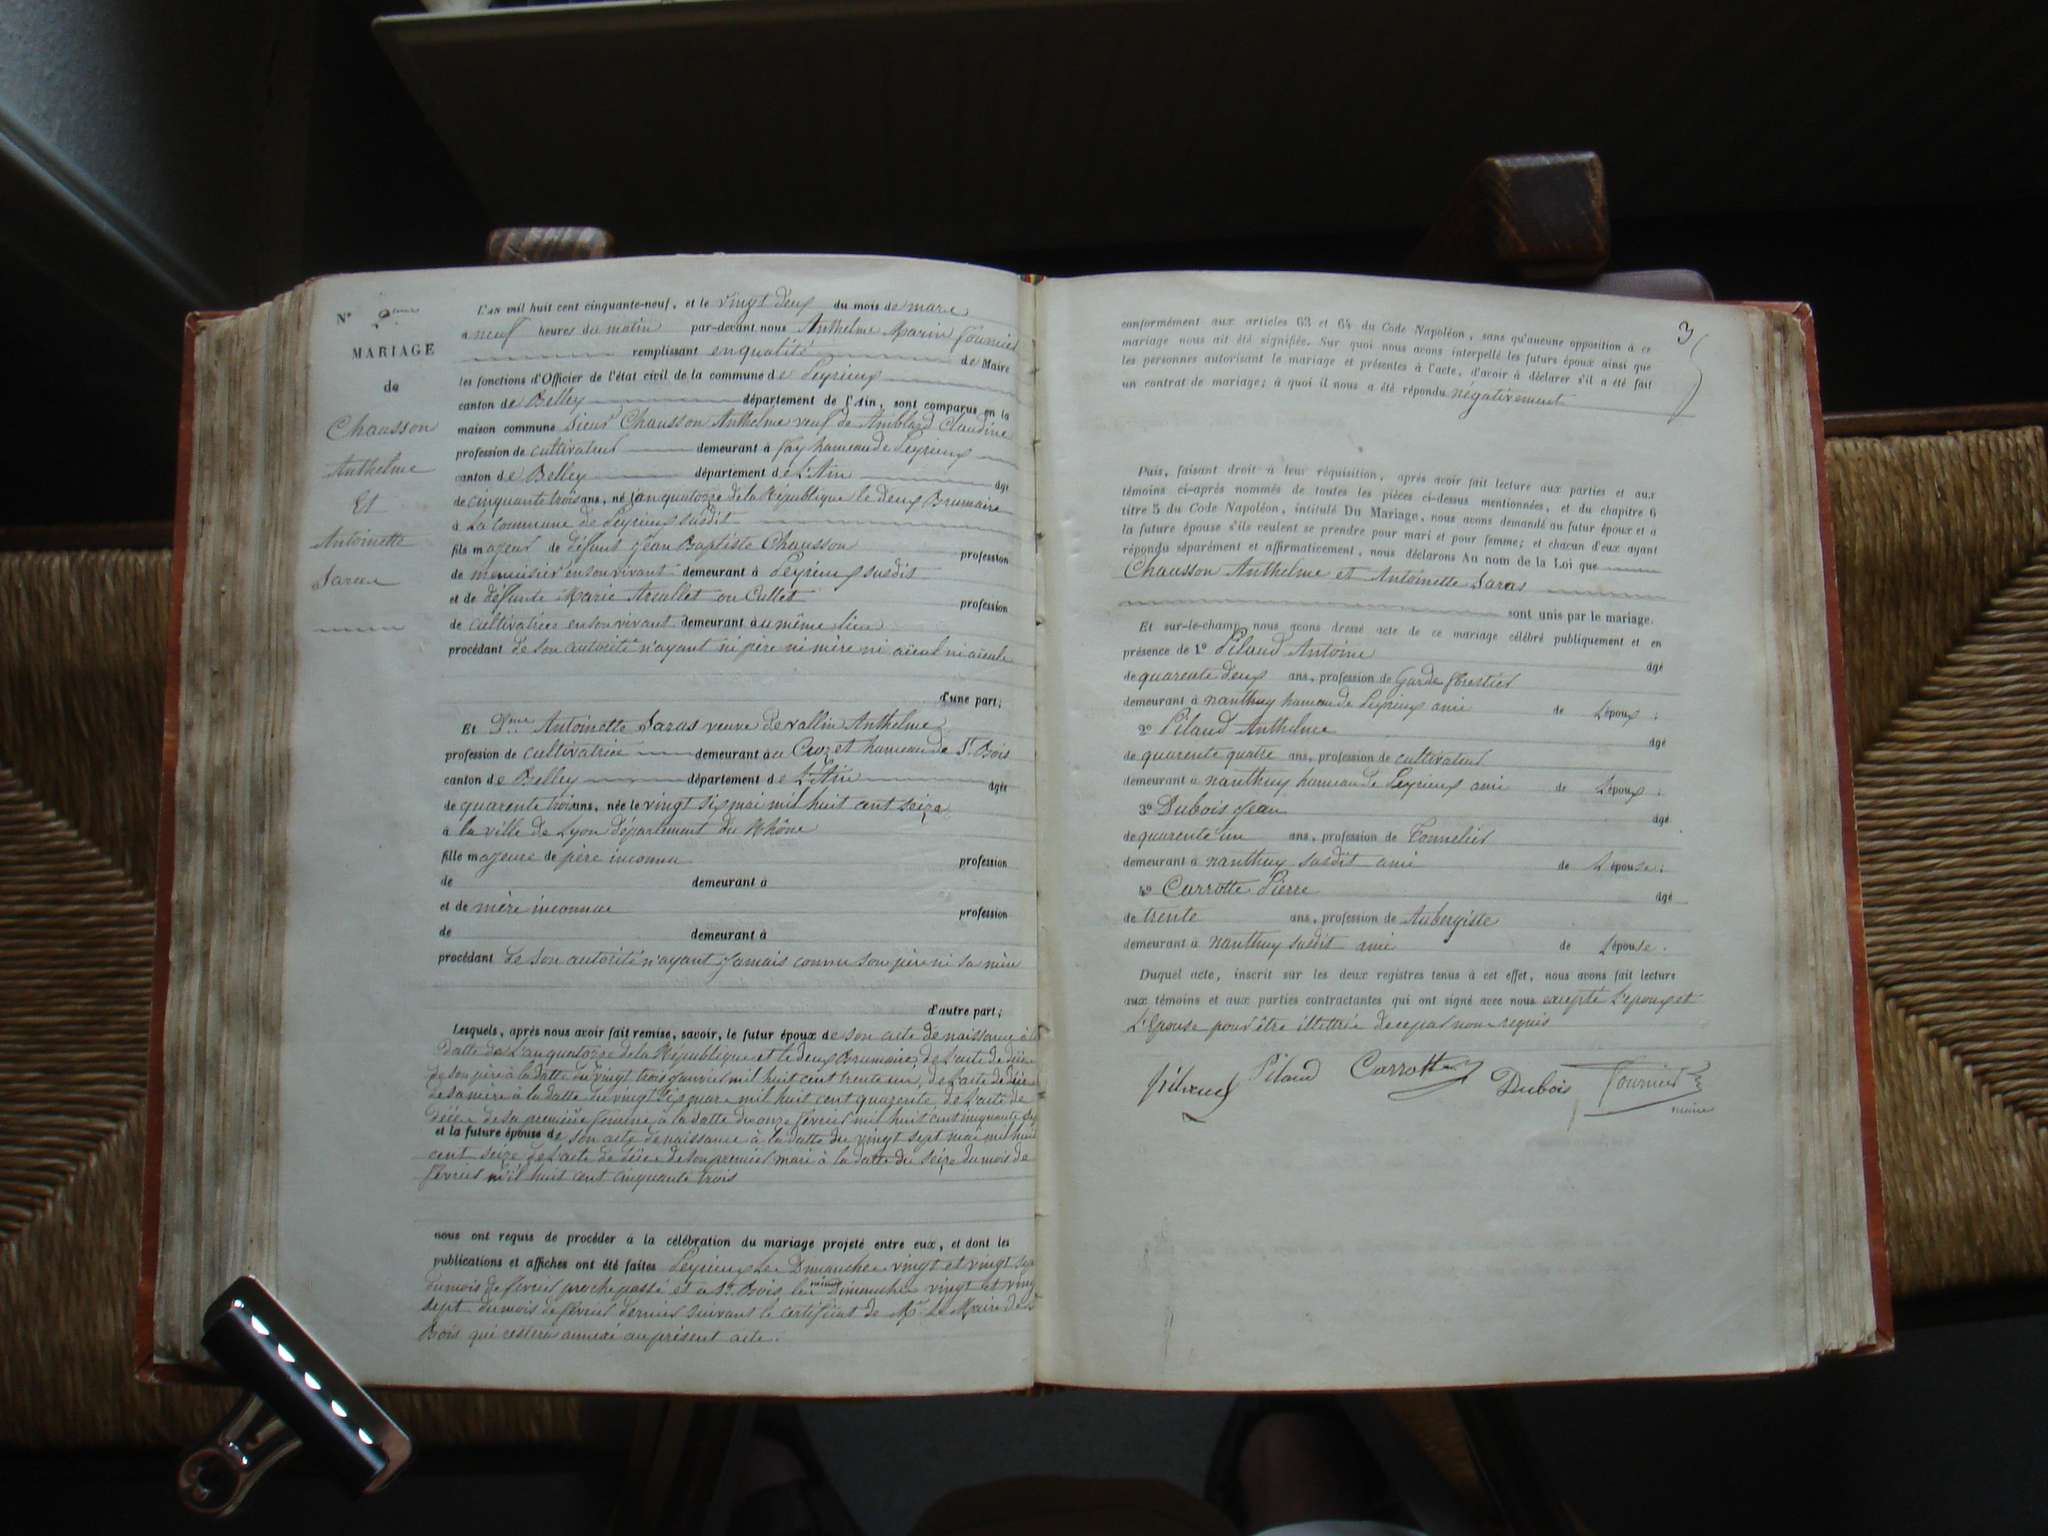 N° 2eme
MARIAGE
de
Chausson
Anthelme
Et
Antoinette
Saras
L'AN mil huit cent cinquante-neuf, et le vingt deux du mois de mars
à neuf heures du matin par-devant nous Anthelme Marin Fournier
remplissant en qualité de Maire
les fonctions d'Officier de l'état civil de la commune de Peyrieux
canton de Belley département de l'Ain, sont comparus en la
maison commune Sieur Chausson Anthelme veuf de Amblard Claudine
profession de cultivateur demeurant à fay hameau de Peyrieux
canton de Belley département de L'Ain âgé
de cinquante trois ans, né l'an quatorze de la République le deux Brumaire
à La Commune de Peyrieux susdit
fils majeur de défunt Jean Baptiste Chausson profession
de menuisier en son vivant demeurant à Peyrieux susdit
et de défunte Marie ou Cullet profession
de cultivatrice en son vivant demeurant au même lieu
procédant de son autorité n'ayant ni père ni mère ni aïeul ni aïeule
d'une part;
Et Dme Antoinette Saras veuve de vallin Anthelme
profession de cultivatrice demeurant au Crozet hameau de St Bois
canton de Belley département de L'Ain âgée
de quarente trois ans, née le vingt six mai mil huit cent seize
à la ville de Lyon département du Rhône
fille majeure de père inconnu profession
de demeurant à
et de mère inconnue profession
de demeurant à
procédant de son autorité n'ayant jamais connu son père ni sa mère
d'autre part;
Lesquels, après nous avoir fait remise, savoir, le futur époux de son acte de naissance à la
datte de L'an quatorze de la République et le deux Brumaire, de l'acte de décè
de son père à la datte du vingt trois janvier mil huit cent trente un, de l'acte de décè
de sa mère à la datte du vingt six mars mil huit cent quarente, de L'acte de
décè de sa première femme à la datte du onze février mil huit cent cinquante
et la future épouse de son acte de naissance à la datte du vingt sept mai mil huit
cent seize de l'acte de décè de son premier mari à la datte du seize du mois de
février mil huit cent cinquante trois
nous ont requis de procéder à la célébration du mariage projeté entre eux, et dont les
publications et affiches ont été faites Peyrieux Les Dimanches vingt et vingt sept
du mois de février proche passé et à St Bois les mêmes Dimanches vingt et vingt
sept du mois de février dernier suivant le certificat de Mr Le Maire de St
Bois qui restera annexé au présent acte.
3
conformément aux articles 63 et 64 du Code Napoléon, sans qu'aucune opposition à ce
mariage nous ait été signifiée. Sur quoi nous avons interpellé les futurs époux ainsi que
les personnes autorisant le mariage et présentes à l'acte, d'avoir à déclarer s'il a été fait
un contrat de mariage; à quoi il nous a été répondu négativement
Puis, faisant droit à leur réquisition, après avoir fait lecture aux parties et aux
témoins ci-après nommés de toutes les pièces ci-dessus mentionnées, et du chapitre 6
titre 5 du Code Napoléon, intitulé Du Mariage, nous avons demandé au futur époux et à
la future épouse s'ils veulent se prendre pour mari et pour femme; et chacun d'eux ayant
répondu séparément et affirmativement, nous déclarons Au nom de la Loi que
Chausson Anthelme et Antoinette Saras
sont unis par le mariage.
Et sur-le-champ nous avons dressé acte de ce mariage célébré publiquement et en
présence de 1° Pilaud Antoine âgé
de quarente deux ans, profession de Garde forestier
demeurant à nanthuy hameau de Peyrieux ami de L'époux;
2° Pilaud Anthelme âgé
de quarente quatre ans, profession de cultivateur
demeurant à nanthuy hameau de Peyrieux ami de L'époux;
3° Dubois Jean âgé
de quarente un ans, profession de Tonnelier
demeurant à nanthuy susdit ami de L'épouse;
4° Carrotte Pierre âgé
de trente ans, profession de Aubergiste
demeurant à nanthuy susdit ami de L'épouse.
Duquel acte, inscrit sur les deux registres tenus à cet effet, nous avons fait lecture
aux témoins et aux parties contractantes qui ont signé avec nous excepté L'époux et
L'Epouse pour être illettrés de ce par nous requis
Pilaud Carrotte Dubois Fournier
maire